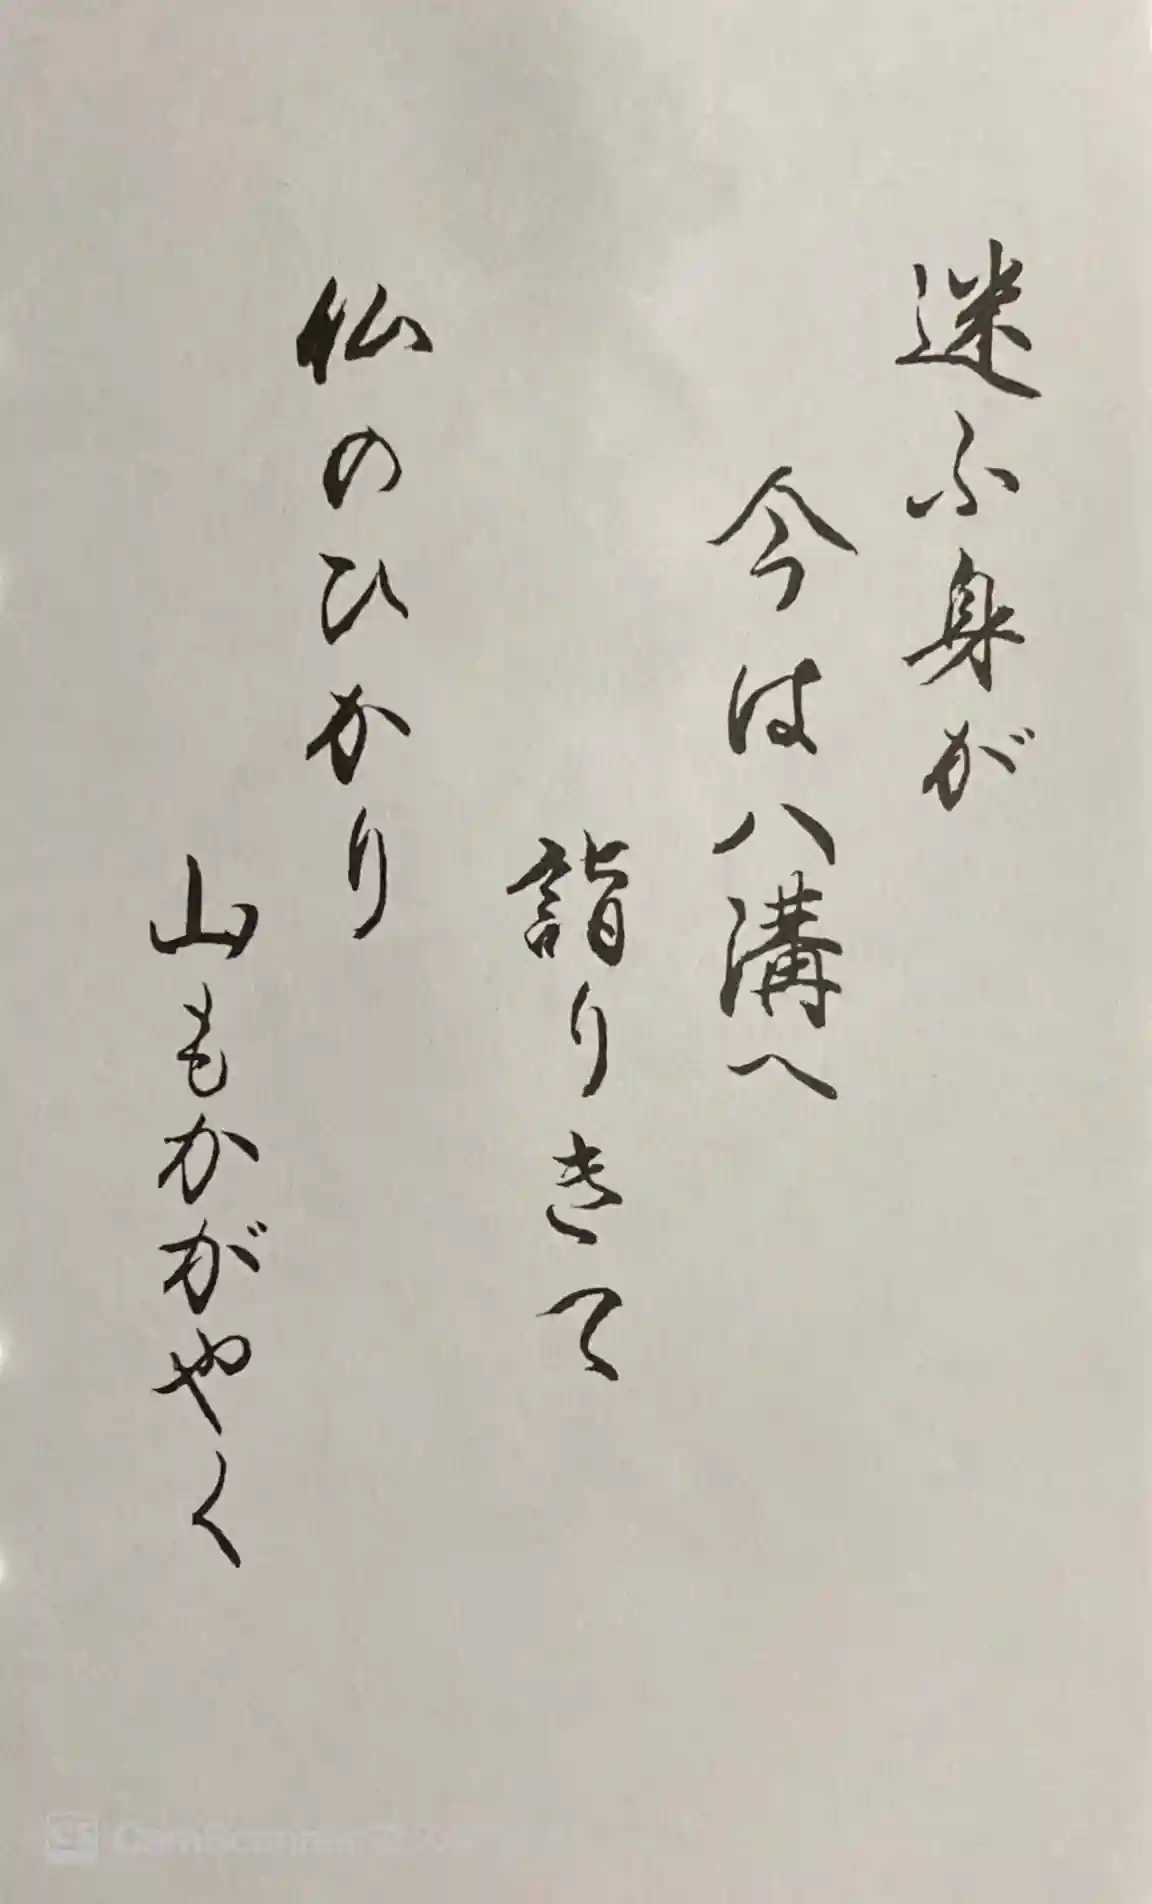 迷ふ身が
今は八溝へ
詣りきて
仏のひかり
山もかがやく
CS CamScanner